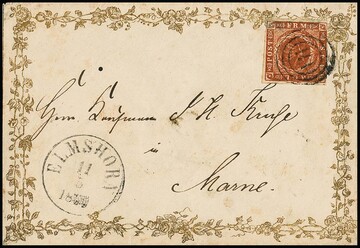 FRM
POST
Herrn Kaufmann J. H. Kruse
in
Marne.
ELMSHORN
11
5